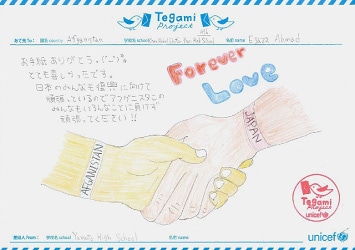 Tegami
Project
あて先 To: 国名 country Afganistan 学校名 school High School 名前 name Ahmad
お手紙ありがとう。(^_^)
とても嬉しかったです。
日本のみんなも復興に向けて
頑張っているのでアフガニスタンの
みんなもいろんなことに負けず
頑張ってください!!
Forever
Love
AFGANISTAN
JAPAN
Tegami
Project
unicef
差出人 From: 学校名 school High School 名前 name
unicef